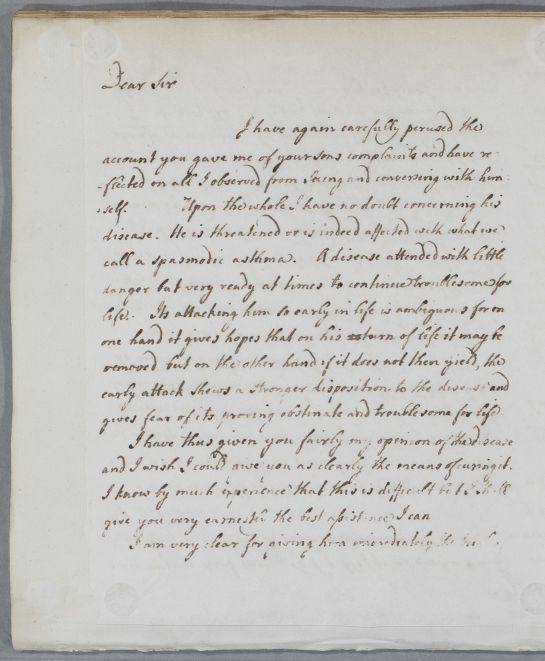 Dear Sir
I have again carefully perused the
account you gave me of your sons complaints and have re-
-flected on all I observed from Seeing and conversing with him-
-self. Upon the whole I have no doubt concerning his
disease. He is threatened or is indeed affected with what we
call a spasmodic asthma. A disease attended with little
danger but very ready at times to continue troublesome for
life. Its attacking him so early in life is ambiguous for on
one hand it gives hopes that on his turn of life it may be
removed but on the other hand if it does not then yield, the
early attack shews a stronger disposition to the disease and
gives fear of its proving obstinate and troublesome for life.
I have thus given you fairly my opinion of the disease
and I wish I could give you as clearly the means of curing it.
I know by much experience that this is difficult but I shall
give you very earnestly the best assistance I can
I am very clear for giving him immediately the